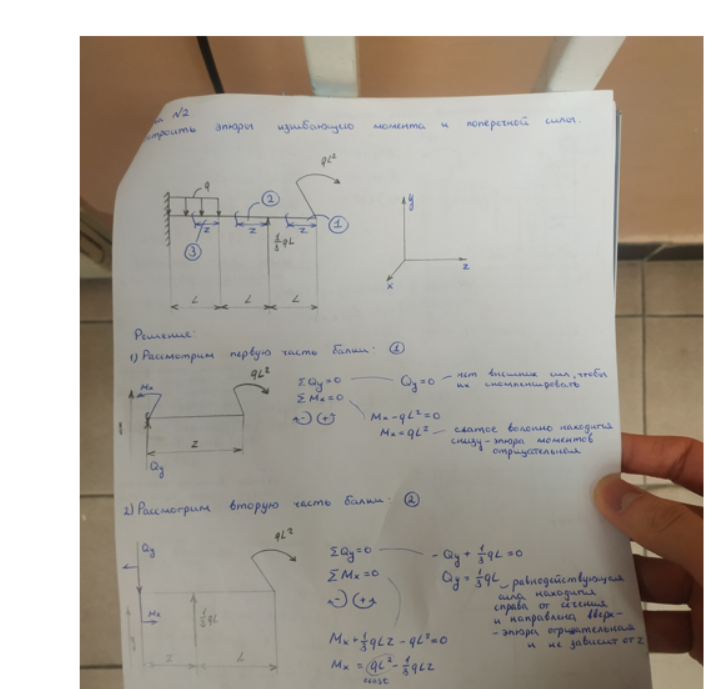 №2
строить эпюры изгибающго момента и поперечной силы.
qL²
q
②
①
z
z
z
③
1/3 qL
y
z
x
L
L
L
Решение:
1) Рассмотрим первую часть балки: ①
Mx
qL²
z
Qy
ΣQy=0
Qy=0 – нет внешних сил, чтобы
их скомпенсировать
ΣMx=0
(-) (+)
Mx-qL²=0
Mx=qL² – сжатое волокно находится
снизу-эпюра моментов
отрицательная
2) Рассмотрим вторую часть балки: ②
Qy
Mx
qL²
1/3 qL
z
L
ΣQy=0
-Qy + 1/3 qL = 0
ΣMx=0
Qy = 1/3 qL – равнодействующая
сила находится
справа от сечения
и направлена вверх-
-эпюра отрицательная
и не зависит от z
(-) (+)
Mx+1/3 qLz - qL²=0
Mx = qL² - 1/3 qLz
const